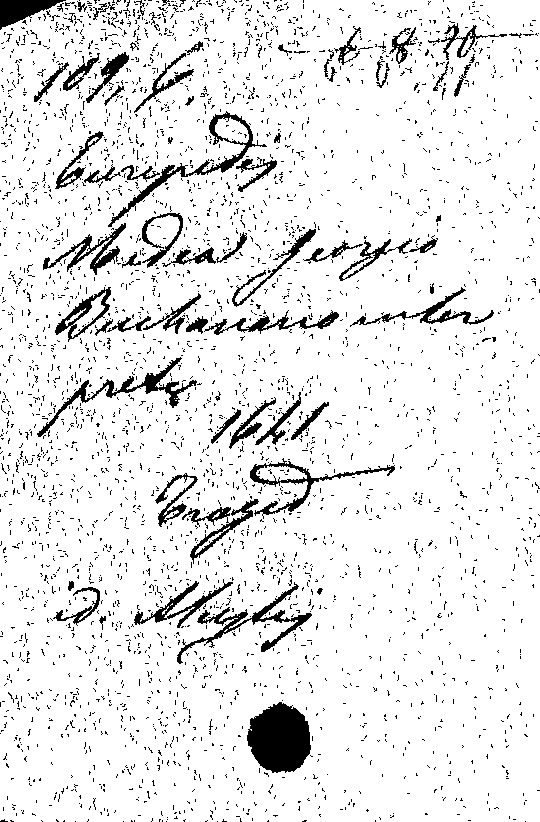 109, C.
6. 8. 70
Euripidis
Medea Georgio
Buchanano inter
prete
1641
Traged
id.